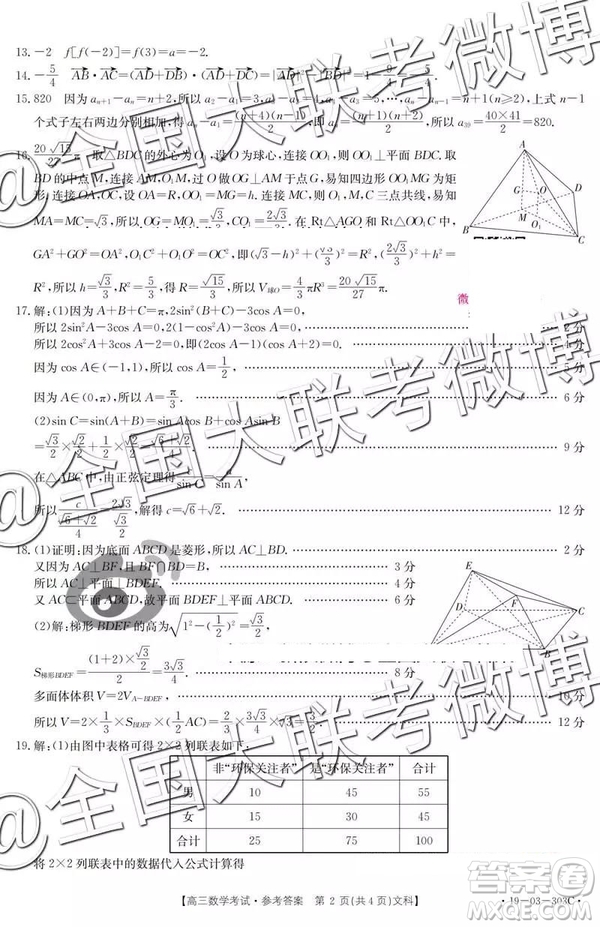 13. −2　f[f(−2)]=f(3)=a=−2.
14. −5/4　AB·AC=(AD+DB)·(AD+DC)=|AD|²−|DB|²=1−9/4=−5/4.
15. 820　因为aₙ₊₁−aₙ=n+2,所以a₂−a₁=3,
个式子左右两边分别相加,得aₙ−a₁=(n+4)(n−1)/2,所以 a₃₉=40×41/2=820.
16. 20√15/27 π　取△BDC的外心为O₁,设O为球心,连接OO₁,则OO₁⊥平面BDC.取
BD的中点M,连接AM,过O做OG⊥AM于点G,易知四边形OO₁MG为矩
形,连接OA,OC,设OA=R,OO₁=MG=h.连接MC,则O₁,M,C三点共线,易知
MA=MC=√3,所以OG=MO₁=√3/3,CO₁=2√3/3.在Rt△AGO和Rt△OO₁C中,
GA²+GO²=OA²,O₁C²+O₁O²=OC²,即(√3−h)²+(√3/3)²=R²,(2√3/3)²+h²=R²,所以
h=√3/3,R²=5/3,得R=√15/3,所以V球O=4/3 πR³=20√15/27 π.
17. 解:(1)因为A+B+C=π,2sin²(B+C)=3cos A,
所以2sin²A=3cos A,2(1−cos²A)=3cos A, 2分
所以2cos²A+3cos A−2=0, 4分
因为cos A∈(−1,1),所以cos A=1/2, 5分
又因为A∈(0,π),所以A=π/3. 6分
(2)sin C=sin(A+B)=sin Acos B+cos Asin B
=√3/2×√2/2+1/2×√2/2=(√6+√2)/4. 9分
在△ABC中,由正弦定理得c/sin C=a/sin A,
所以 c/((√6+√2)/4)=2√3/(√3/2),解得c=√6+√2. 12分
18. (1)证明:因为底面ABCD是菱形,所以AC⊥BD. 2分
又因为AC⊥BF,且BF∩BD=B, 3分
所以AC⊥平面BDEF. 4分
又AC⊂平面ABCD,故平面ABCD⊥平面BDEF. 6分
(2)解:梯形BDEF的高为√(1²−(1/2)²)=√3/2,
S梯形BDEF=((1+2)×√3/2)/2=3√3/4. 8分
多面体体积V=2V_A−BDEF, 10分
所以V=2×1/3×S_BDEF×(1/2 AC)=2/3×3√3/4×√3/2=3/4. 12分
19. 解:(1)由图中表格可得2×2列联表如下:
非“环保关注者” 是“环保关注者” 合计
男 10 45 55
女 15 30 45
合计 25 75 100
将2×2列联表中的数据代入公式计算得
【高三数学考试·参考答案　第2页(共4页)文科】
·19-03-303C·
@全国大联考微博